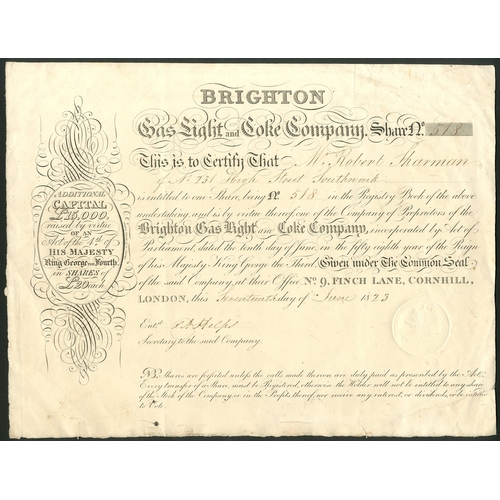 BRIGHTON
Gas Light and Coke Company, Share No. 518
This is to Certify That Mr. Robert Sharman
of No. 231 High Street Southwark
is intitled to one Share, being No. 518 in the Registry Book of the above
undertaking, and is by virtue thereof, one of the Company of Proprietors of the
Brighton Gas Light and Coke Company, incorporated by Act of
Parliament, dated the tenth day of June, in the fifty eighth year of the Reign
of his Majesty King George the Third, Given under The Common Seal
of the said Company, at their Office No. 9, FINCH LANE, CORNHILL,
LONDON, this Seventeenth day of June 1823
Entd.
Secretary to the said Company.
N.B. Shares are forfeited unless the calls made thereon are duly paid as prescribed by the Act
Every transfer of a Share must be Registered, otherwise the Holder will not be intitled to any share
of the Stock of the Company, or in the Profits thereof, nor receive any interest, or dividends, or be intitled
to Vote.
ADDITIONAL
CAPITAL
£15,000,
raised by virtue
OF AN
Act of the 4th of
HIS MAJESTY
King George the Fourth,
in SHARES of
£20 each